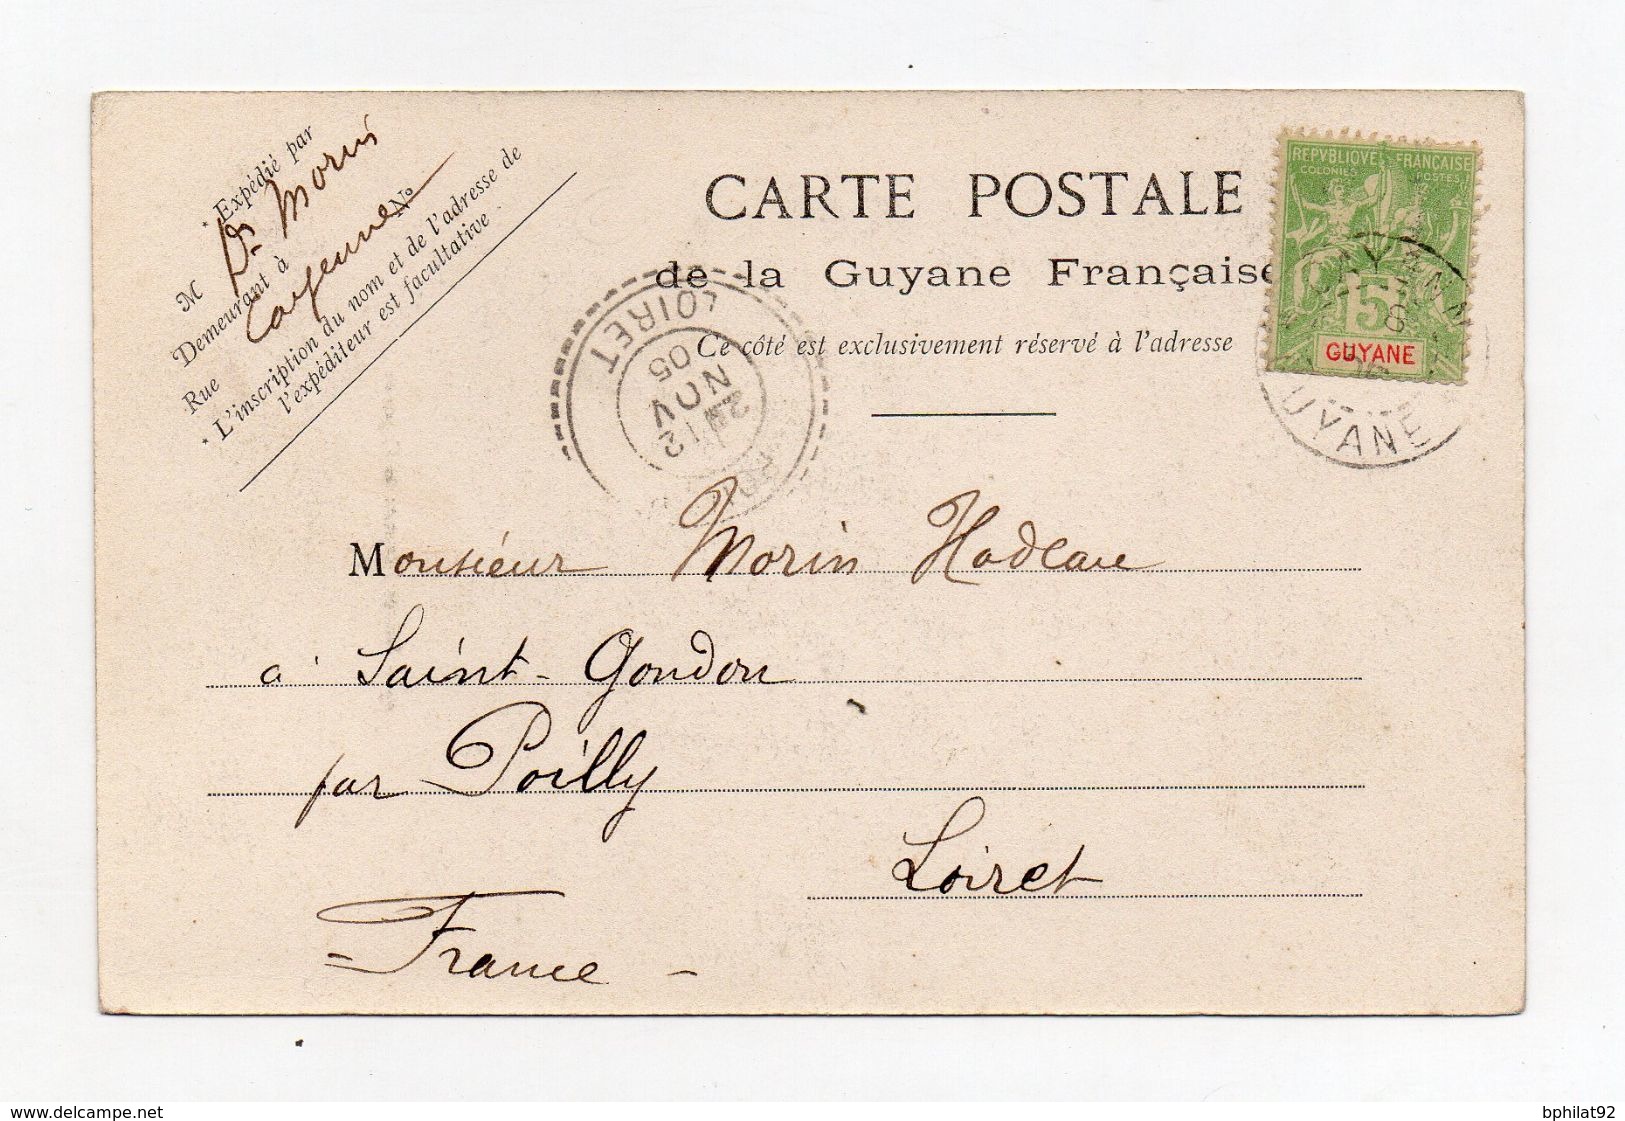 Expédié par
M Dr Morin
Demeurant à Cayenne
Rue N°
L'inscription du nom et de l'adresse de
l'expéditeur est facultative
CARTE POSTALE
de la Guyane Française
Ce côté est exclusivement réservé à l'adresse
REPVBLIQVE FRANÇAISE
COLONIES POSTES
5
GUYANE
CAYENNE
GUYANE
LOIRET
12
NOV
05
Monsieur Morin
à Saint-Gondon
par Poilly
Loiret
= France -
www.delcampe.net
bphilat92